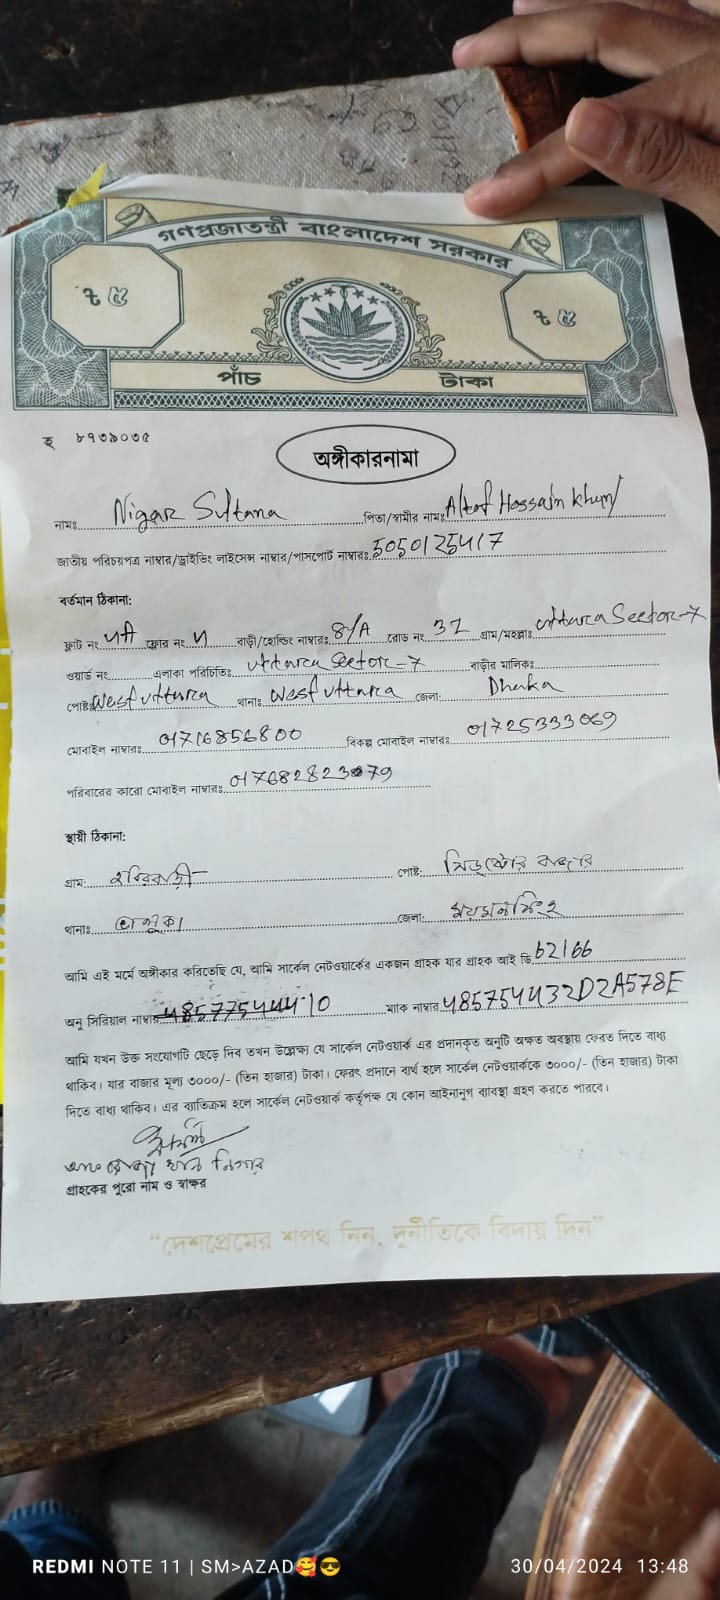 গণপ্রজাতন্ত্রী বাংলাদেশ সরকার
৳ ৫
৳ ৫
পাঁচ টাকা
হ ৮৭৩৯০৩৫
অঙ্গীকারনামা
নামঃ Nigar Sultana পিতা/স্বামীর নামঃ Hossain Khan
জাতীয় পরিচয়পত্র নাম্বার/ড্রাইভিং লাইসেন্স নাম্বার/পাসপোর্ট নাম্বারঃ 5050125417
বর্তমান ঠিকানা:
ফ্লাট নং 4A ফ্লোর নং 4 বাড়ী/হোল্ডিং নাম্বারঃ 8/A রোড নং 32 গ্রাম/মহল্লাঃ uttara Sector-7
ওয়ার্ড নং এলাকা পরিচিতিঃ uttara Sector-7 বাড়ীর মালিকঃ
পোষ্টঃ West uttara থানাঃ West uttara জেলা: Dhaka
মোবাইল নাম্বারঃ 01716856800 বিকল্প মোবাইল নাম্বারঃ 01725333069
পরিবারের কারো মোবাইল নাম্বারঃ
স্থায়ী ঠিকানা:
গ্রাম: হবিরবাড়ী পোষ্ট: সিডষ্টোর বাজার
থানাঃ ভালুকা জেলা: ময়মনসিংহ
আমি এই মর্মে অঙ্গীকার করিতেছি যে, আমি সার্কেল নেটওয়ার্কের একজন গ্রাহক যার গ্রাহক আই ডি 62166
অনু সিরিয়াল নাম্বার ম্যাক নাম্বার 485754432D2A578E
আমি যখন উক্ত সংযোগটি ছেড়ে দিব তখন উল্লেক্ষ্য যে সার্কেল নেটওয়ার্ক এর প্রদানকৃত অনুটি অক্ষত অবস্থায় ফেরত দিতে বাধ্য
থাকিব। যার বাজার মূল্য ৩০০০/- (তিন হাজার) টাকা। ফেরৎ প্রদানে ব্যর্থ হলে সার্কেল নেটওয়ার্ককে ৩০০০/- (তিন হাজার) টাকা
দিতে বাধ্য থাকিব। এর ব্যতিক্রম হলে সার্কেল নেটওয়ার্ক কর্তৃপক্ষ যে কোন আইনানুগ ব্যাবস্থা গ্রহণ করতে পারবে।
গ্রাহকের পুরো নাম ও স্বাক্ষর
“দেশপ্রেমের শপথ নিন, দুর্নীতিকে বিদায় দিন”
REDMI NOTE 11 | SM>AZAD🥰😎 30/04/2024 13:48